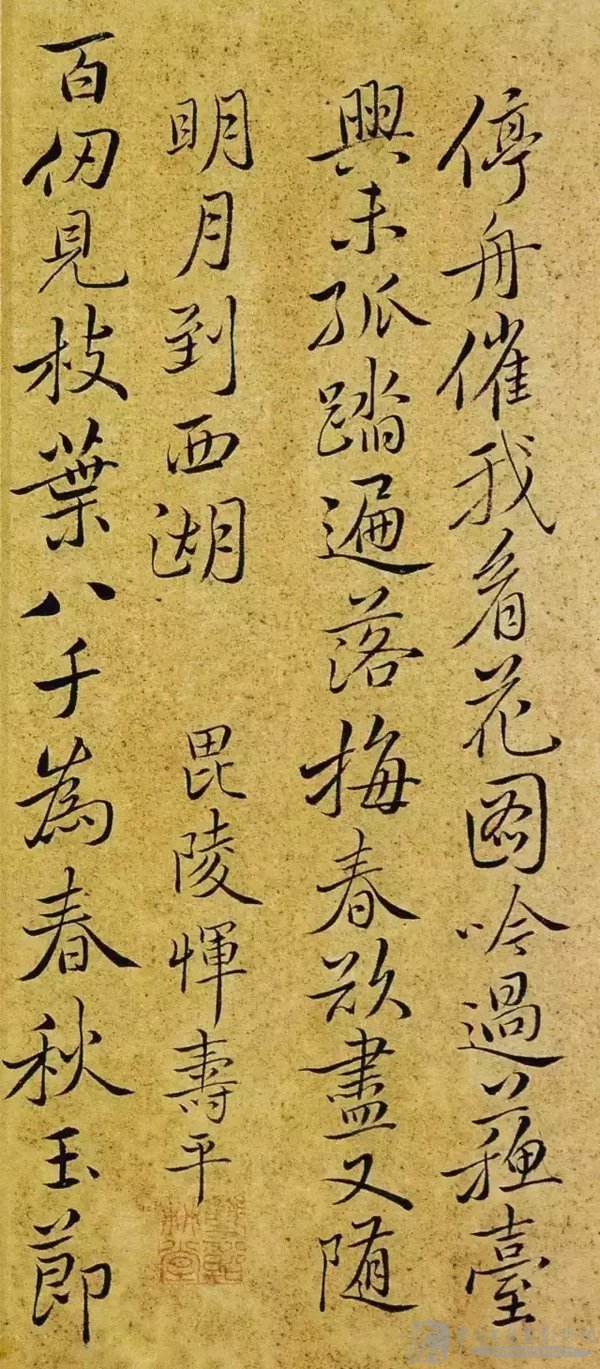 停舟催我看花圖吟過蘓臺
興未孤踏遍落梅春欲盡又随
明月到西湖 毘陵惲壽平
百仞見枝葉八千為春秋玉節